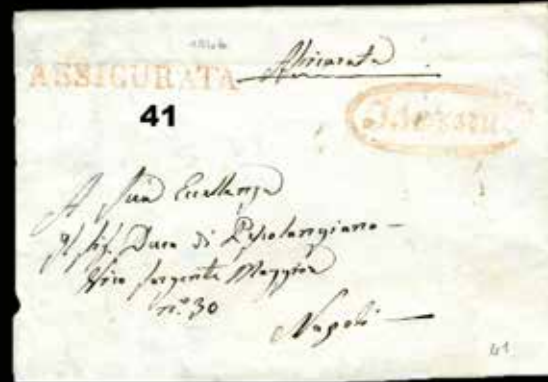 1846
ASSICURATA Assicurata
41
A Sua Eccellenza
Il Sig. Duca di
Vico Sergente Maggiore
n.° 30
Napoli
41